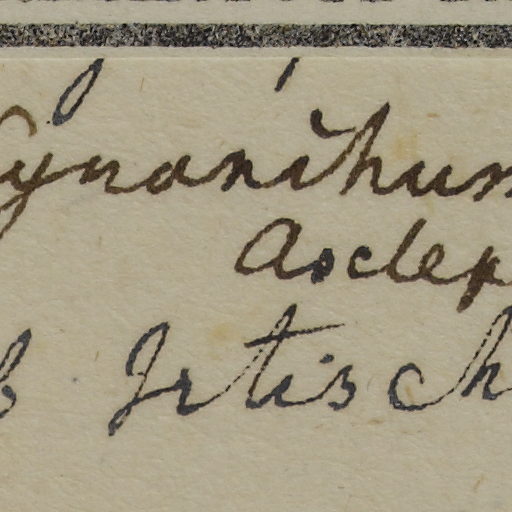 Cynanchum
Asclep
Irtisch